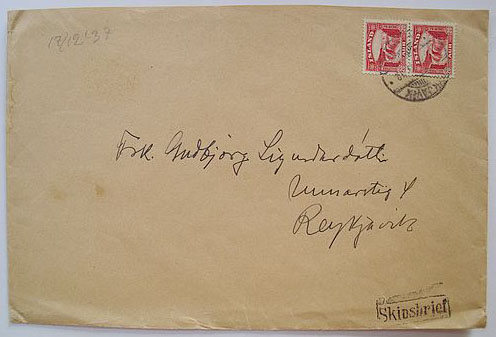 17/12 '37
ÍSLAND ÍSLAND
Frk. Guðbjörg Sigurðardóttir
Unnarstíg 4
Reykjavík
Skipsbrief